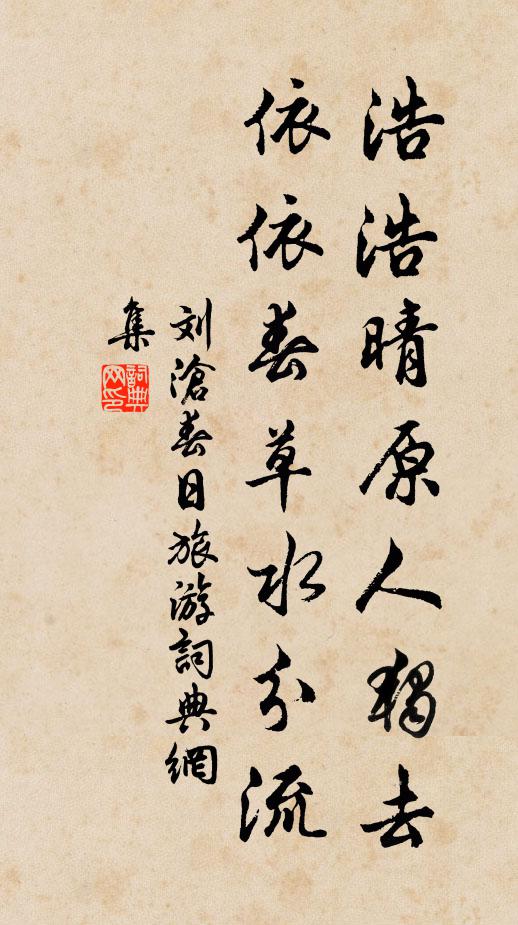 浩浩晴原人独去
依依春草水分流
刘滄春日旅游詞典網
集
詞典
网印